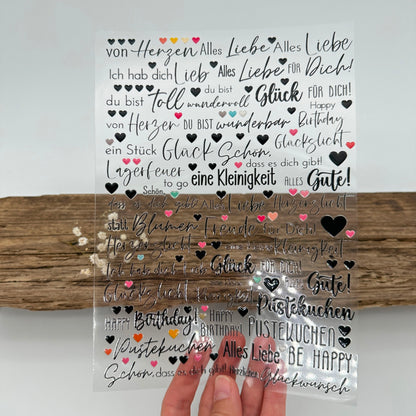 von Herzen Alles Liebe Alles Liebe
Ich hab dich Lieb Alles Liebe FÜR Dich!
du bist Toll wundervoll du bist Glück FÜR DICH!
von Herzen DU BIST wunderbar Happy Birthday
ein Stück Glück Schön, dass es dich gibt! Glückslicht
Lagerfeuer to go eine Kleinigkeit ALLES Gute!
Schön, dass es dich gibt Alles Liebe Herzenslicht
statt Blumen Freude
Herzenslicht eine Kleinigkeit
Ich hab dich Lieb Glück FÜR DICH! ALLES Gute!
Glückslicht Pustekuchen
HAPPY Birthday! HAPPY BIRTHDAY! PUSTEKUCHEN
Pustekuchen Alles Liebe BE HAPPY
Schön, dass es dich gibt! Herzlichen Glückwunsch